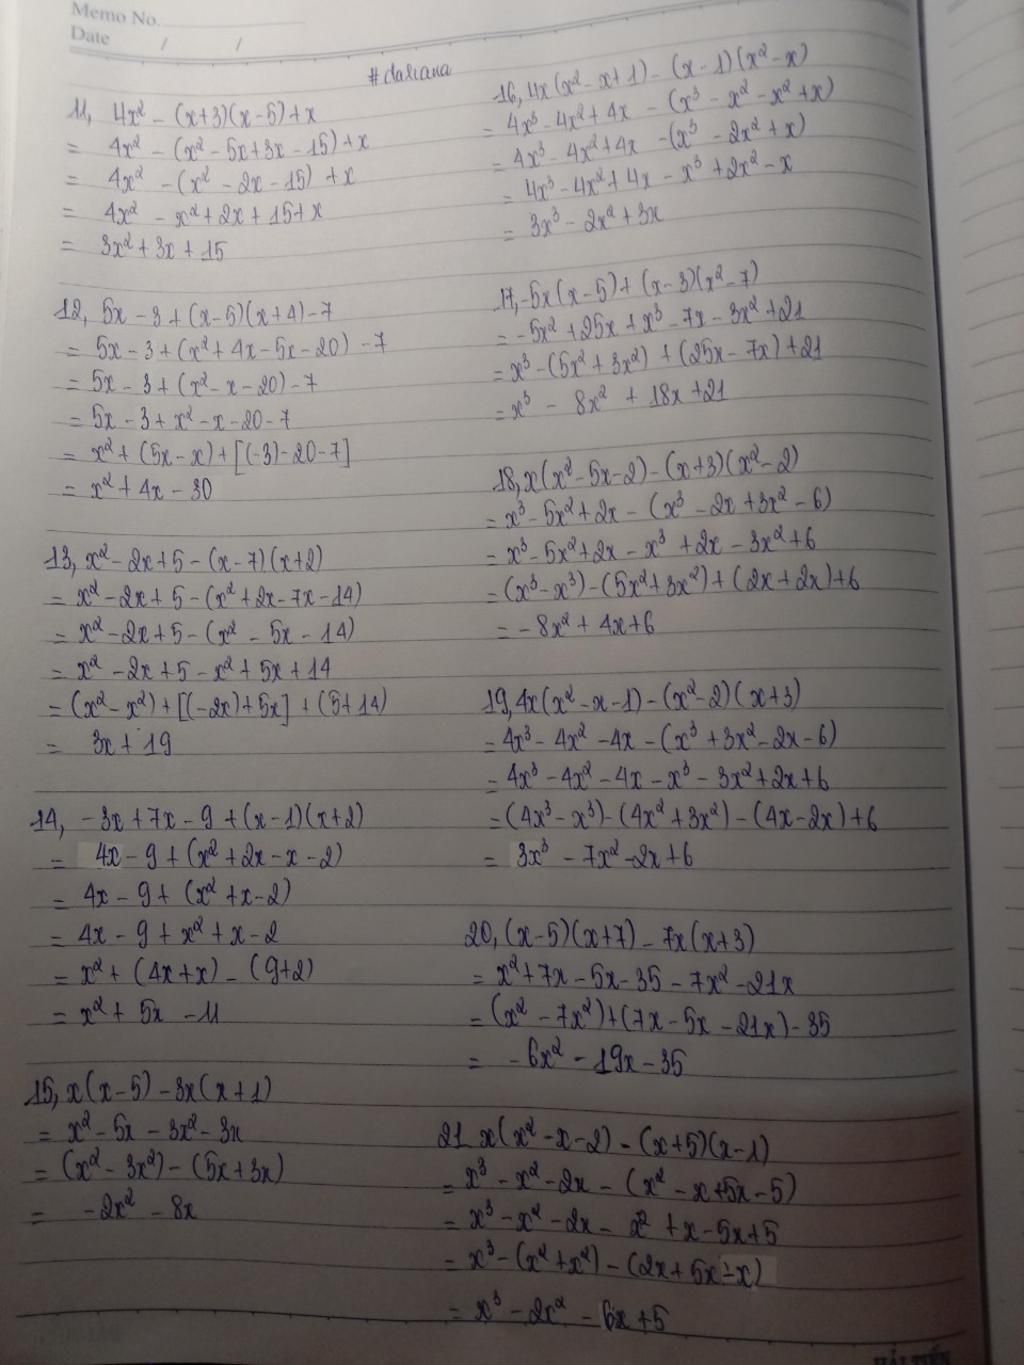 Memo No.
Date / /
#dariana
11, 4x² - (x+3)(x-5)+x
= 4x² - (x² - 5x+3x - 15)+x
= 4x² - (x² - 2x - 15) + x
= 4x² - x² + 2x + 15 + x
= 3x² + 3x + 15
12, 5x - 3 + (x-5)(x+4) - 7
= 5x - 3 + (x² + 4x - 5x - 20) - 7
= 5x - 3 + (x² - x - 20) - 7
= 5x - 3 + x² - x - 20 - 7
= x² + (5x - x) + [(-3) - 20 - 7]
= x² + 4x - 30
13, x² - 2x + 5 - (x - 7)(x+2)
= x² - 2x + 5 - (x² + 2x - 7x - 14)
= x² - 2x + 5 - (x² - 5x - 14)
= x² - 2x + 5 - x² + 5x + 14
= (x² - x²) + [(-2x) + 5x] + (5+14)
= 3x + 19
14, -3x + 7x - 9 + (x-1)(x+2)
= 4x - 9 + (x² + 2x - x - 2)
= 4x - 9 + (x² + x - 2)
= 4x - 9 + x² + x - 2
= x² + (4x + x) - (9+2)
= x² + 5x - 11
15, x(x-5) - 3x(x+1)
= x² - 5x - 3x² - 3x
= (x² - 3x²) - (5x + 3x)
= -2x² - 8x
16, 4x(x² - x + 1) - (x - 1)(x² - x)
= 4x³ - 4x² + 4x - (x³ - x² - x² + x)
= 4x³ - 4x² + 4x - (x³ - 2x² + x)
= 4x³ - 4x² + 4x - x³ + 2x² - x
= 3x³ - 2x² + 3x
17, -5x(x-5) + (x-3)(x² - 7)
= -5x² + 25x + x³ - 7x - 3x² + 21
= x³ - (5x² + 3x²) + (25x - 7x) + 21
= x³ - 8x² + 18x + 21
18, x(x² - 5x - 2) - (x+3)(x² - 2)
= x³ - 5x² + 2x - (x³ - 2x + 3x² - 6)
= x³ - 5x² + 2x - x³ + 2x - 3x² + 6
= (x³ - x³) - (5x² + 3x²) + (2x + 2x) + 6
= -8x² + 4x + 6
19, 4x(x² - x - 1) - (x² - 2)(x+3)
= 4x³ - 4x² - 4x - (x³ + 3x² - 2x - 6)
= 4x³ - 4x² - 4x - x³ - 3x² + 2x + 6
= (4x³ - x³) - (4x² + 3x²) - (4x - 2x) + 6
= 3x³ - 7x² - 2x + 6
20, (x-5)(x+7) - 7x(x+3)
= x² + 7x - 5x - 35 - 7x² - 21x
= (x² - 7x²) + (7x - 5x - 21x) - 35
= -6x² - 19x - 35
21 x(x² - x - 2) - (x+5)(x-1)
= x³ - x² - 2x - (x² - x + 5x - 5)
= x³ - x² - 2x - x² + x - 5x + 5
= x³ - (x² + x²) - (2x + 5x - x)
= x³ - 2x² - 6x + 5
HẢI TIẾN